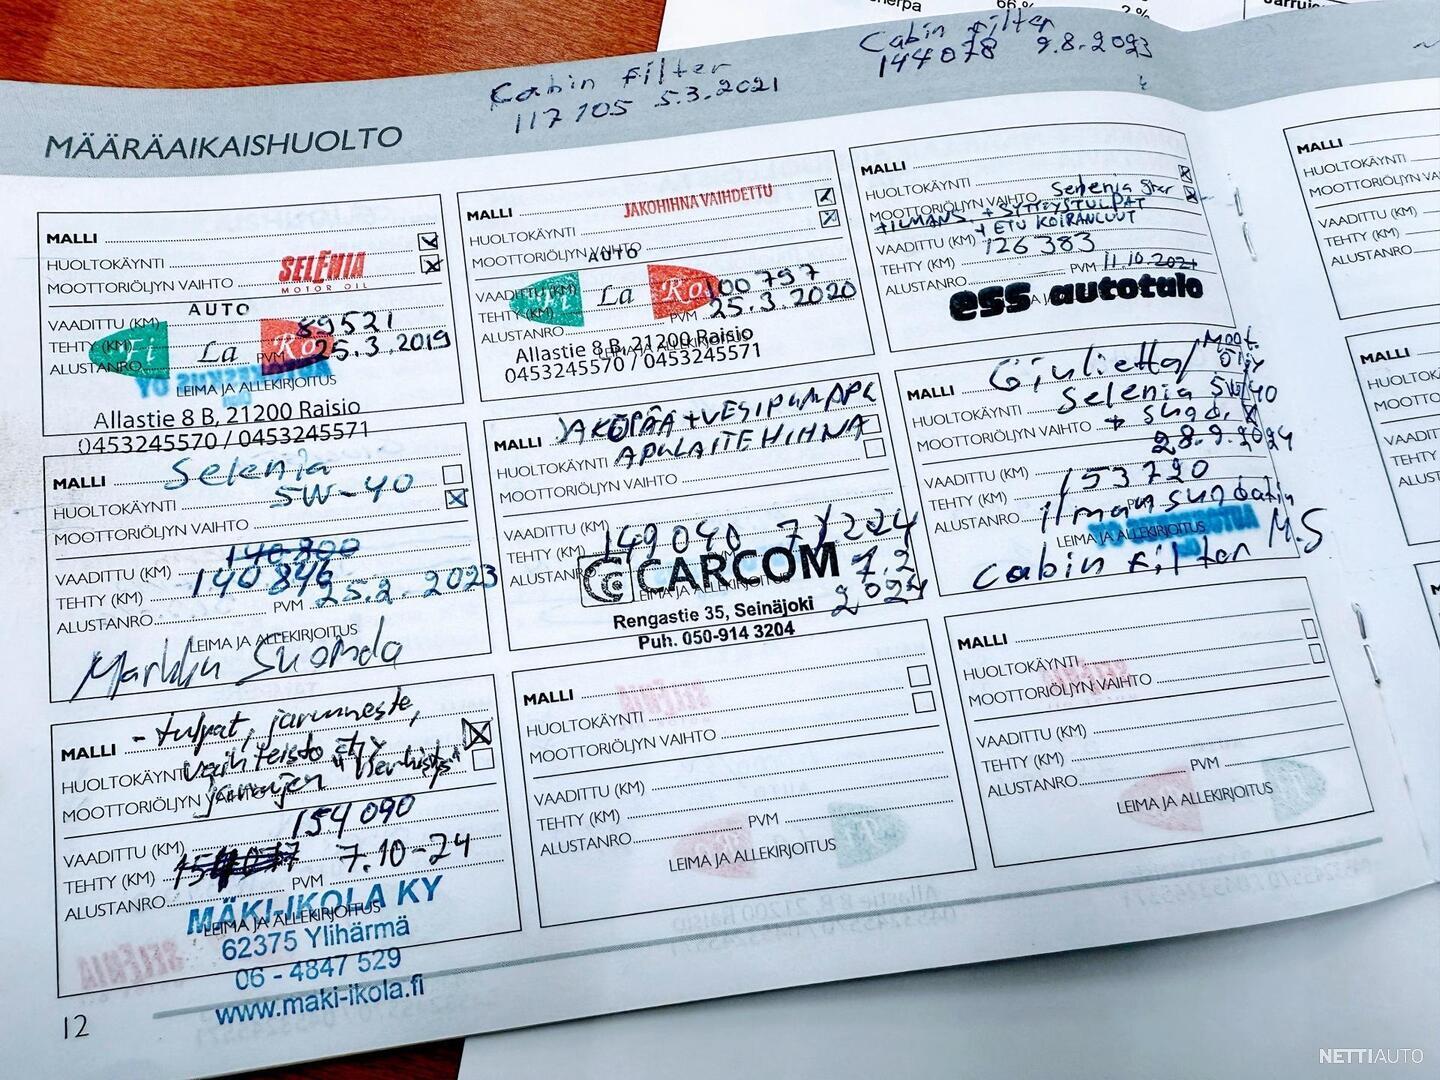 Cabin filter
144078 9.8.2023
Cabin filter
117105 5.3.2021
MÄÄRÄAIKAISHUOLTO
MALLI
HUOLTOKÄYNTI
MOOTTORIÖLJYN VAIHTO
SELENIA
MOTOR OIL
AUTO
VAADITTU (KM)
89521
TEHTY (KM)
Fi La Ro
PVM 25.3.2019
ALUSTANRO
LEIMA JA ALLEKIRJOITUS
Allastie 8 B, 21200 Raisio
0453245570 / 0453245571
MALLI
JAKOHIHNA VAIHDETTU
HUOLTOKÄYNTI
MOOTTORIÖLJYN VAIHTO
AUTO
VAADITTU (KM)
100797
TEHTY (KM)
Fi La Ro
PVM 25.3.2020
ALUSTANRO
LEIMA JA ALLEKIRJOITUS
Allastie 8 B, 21200 Raisio
0453245570 / 0453245571
MALLI
HUOLTOKÄYNTI
MOOTTORIÖLJYN VAIHTO Selenia
ILMANS. + SYTYTYSTULPAT
+ ETU KOIRANLUUT
VAADITTU (KM)
126383
TEHTY (KM)
PVM 11.10.2021
ALUSTANRO
ess autotalo
MALLI
Selenia
5W-40
HUOLTOKÄYNTI
MOOTTORIÖLJYN VAIHTO
140800
VAADITTU (KM)
140846
TEHTY (KM)
PVM 25.2.2023
ALUSTANRO
LEIMA JA ALLEKIRJOITUS
Markku
MALLI
JAKOPÄÄ + VESIPUMPPU
HUOLTOKÄYNTI
APULAITEHIHNA
MOOTTORIÖLJYN VAIHTO
VAADITTU (KM)
149040
TEHTY (KM)
7.2
2024
ALUSTANRO
CARCOM
LEIMA JA ALLEKIRJOITUS
Rengastie 35, Seinäjoki
Puh. 050-914 3204
Moot.
öljy
MALLI
Giulietta
Selenia 5W40
HUOLTOKÄYNTI
MOOTTORIÖLJYN VAIHTO
+ suod.
28.9.2024
VAADITTU (KM)
153720
TEHTY (KM)
PVM
ilmansuodatin
ALUSTANRO
LEIMA JA ALLEKIRJOITUS
Cabin filter M.S
MALLI
- tulpat, jarruneste,
HUOLTOKÄYNTI
vaihteisto öljy
MOOTTORIÖLJYN VAIHTO
jarrujen "herkistys"
154090
VAADITTU (KM)
TEHTY (KM)
7.10-24
PVM
ALUSTANRO
MÄKI-IKOLA KY
LEIMA JA ALLEKIRJOITUS
62375 Ylihärmä
06 - 4847 529
www.maki-ikola.fi
MALLI
HUOLTOKÄYNTI
MOOTTORIÖLJYN VAIHTO
VAADITTU (KM)
TEHTY (KM)
ALUSTANRO
PVM
LEIMA JA ALLEKIRJOITUS
MALLI
HUOLTOKÄYNTI
MOOTTORIÖLJYN VAIHTO
VAADITTU (KM)
TEHTY (KM)
ALUSTANRO
PVM
LEIMA JA ALLEKIRJOITUS
MALLI
HUOLTOKÄYNTI
MOOTTORIÖLJYN
VAADITTU (KM)
TEHTY (KM)
ALUSTANRO
MALLI
12
NETTIAUTO